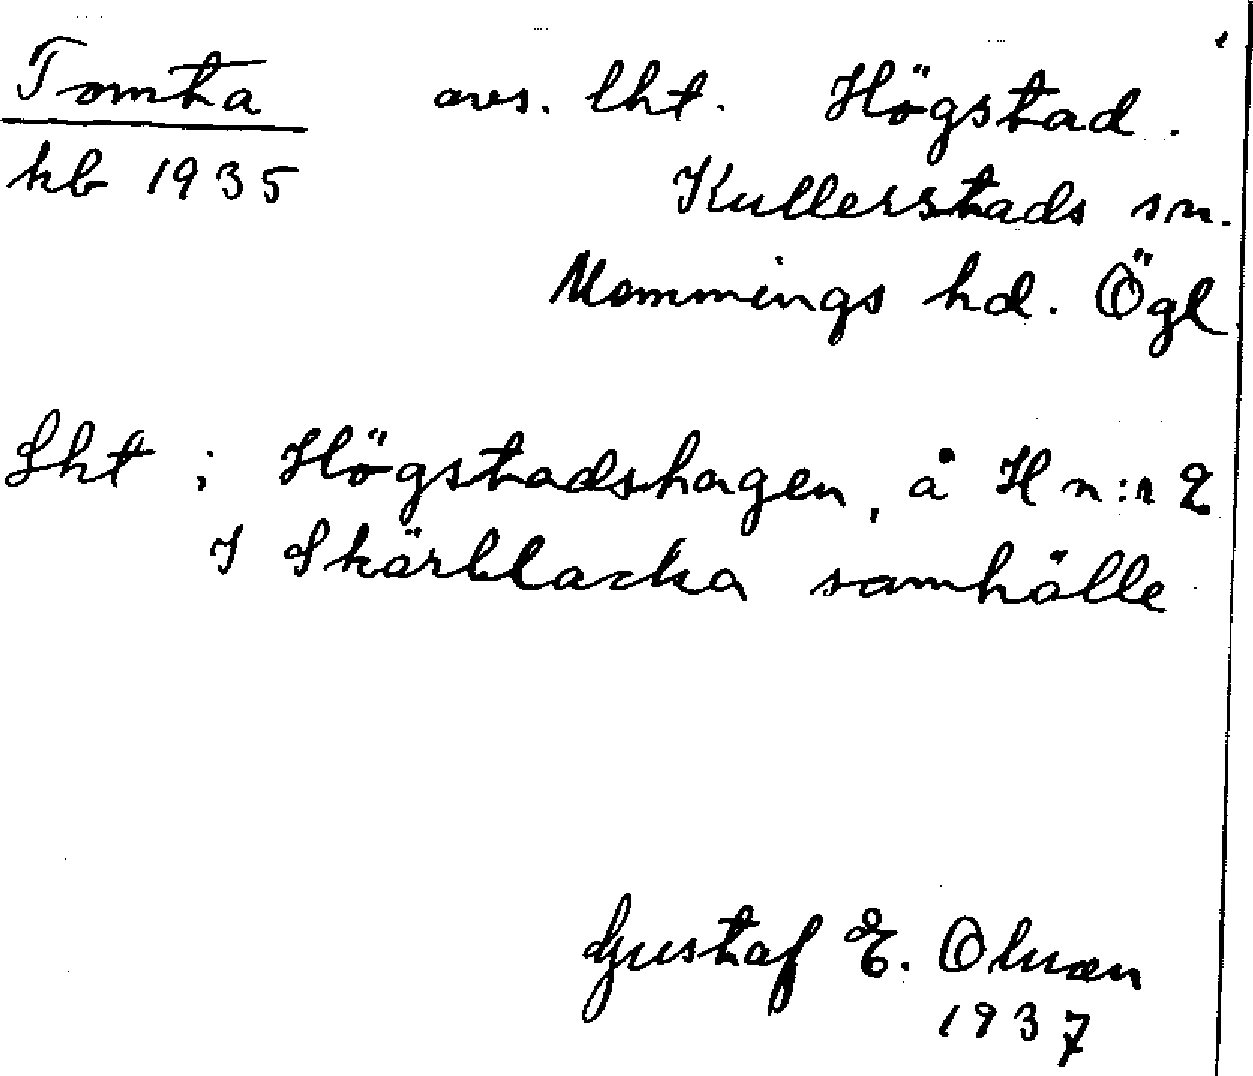 Tomta avs. lht. Högstad.
kb 1935 Kullerstads sn.
Memmings hd. Ögl
Lht i Högstadshagen, å H n:r 2
I Skärblacka samhälle
Gustaf E. Olsson
1937